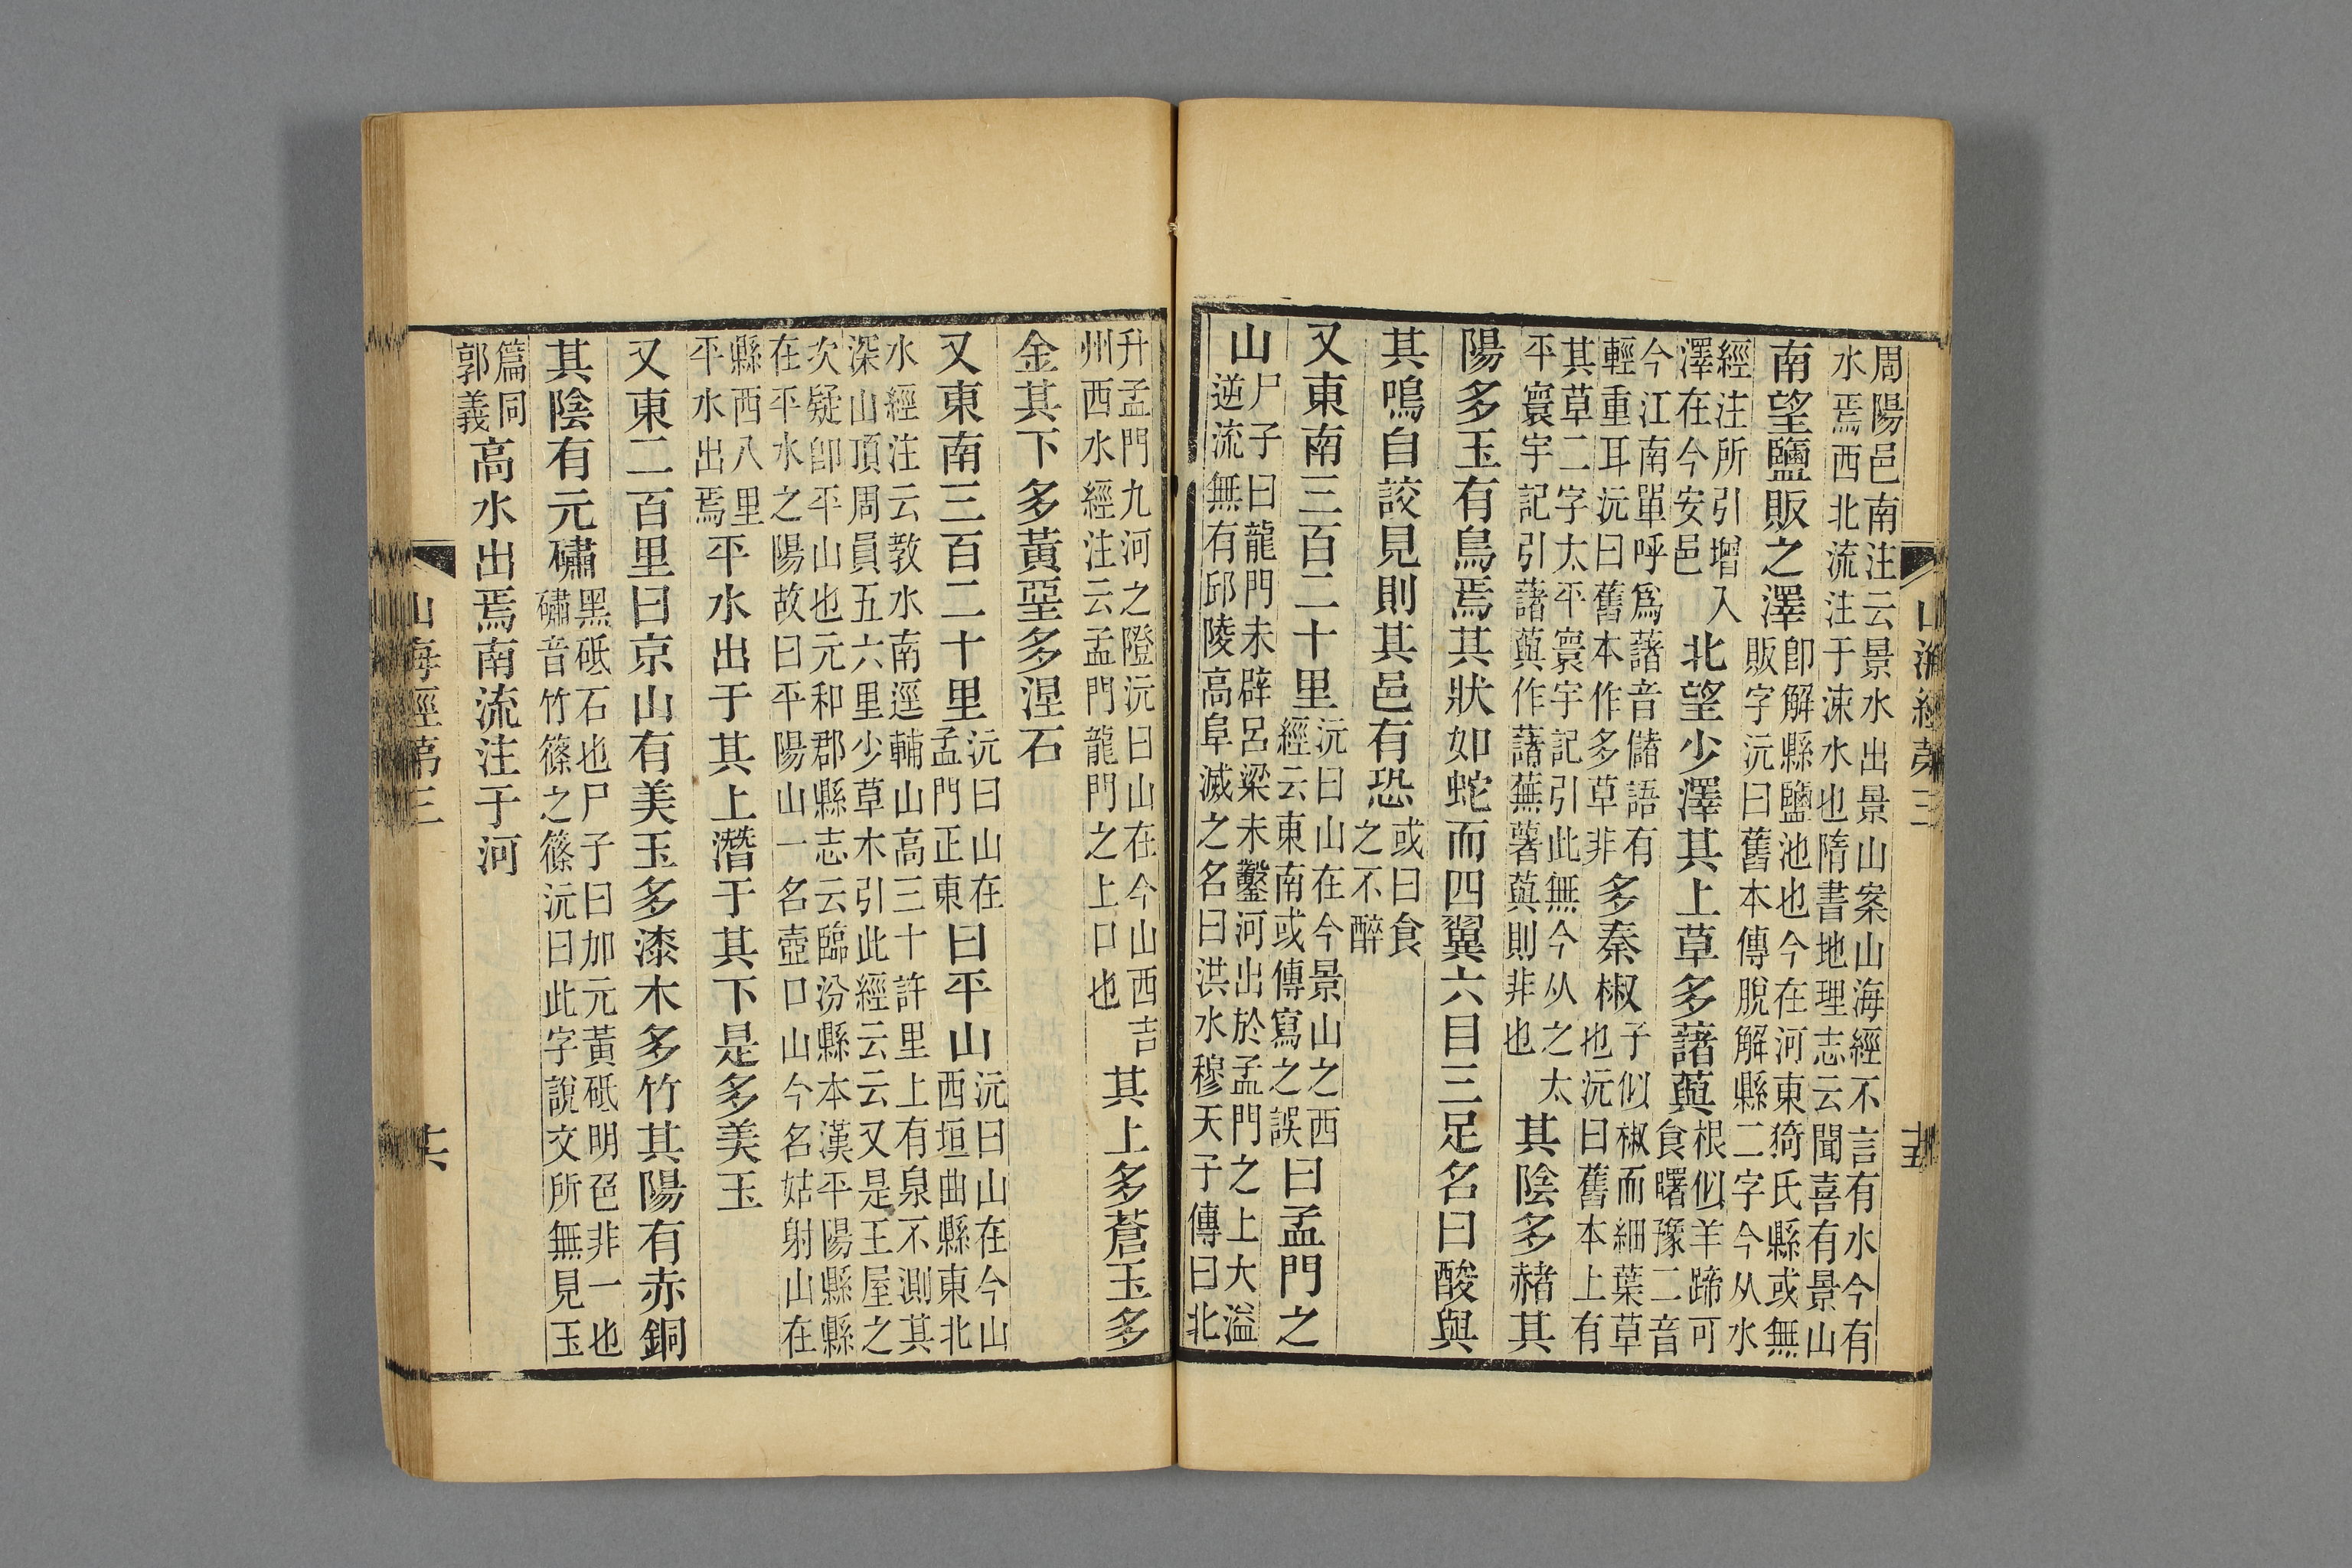 周陽邑南注云景水出景山案山海經不言有水今有
水焉西北流注于涑水也隋書地理志云聞喜有景山
南望鹽販之澤卽解縣鹽池也今在河東猗氏縣或無
販字沅曰舊本傳脫解縣二字今从水
經注所引增入
澤在今安邑
北望少澤其上草多藷藇根似羊蹄可
食曙豫二音
今江南單呼爲藷音儲語有
輕重耳沅曰舊本作多草非
多秦椒子似椒而細葉草
也沅曰舊本上有
其草二字太平寰宇記引此無今从之太
平寰宇記引藷藇作藷蕪薯藇則非也
其陰多赭其
陽多玉有鳥焉其狀如蛇而四翼六目三足名曰酸與
其鳴自詨見則其邑有恐或曰食
之不醉
又東南三百二十里沅曰山在今景山之西
經云東南或傳寫之誤
曰孟門之
山尸子曰龍門未辟呂梁未鑿河出於孟門之上大溢
逆流無有邱陵高阜滅之名曰洪水穆天子傳曰北
升孟門九河之隥沅曰山在今山西吉
州西水經注云孟門龍門之上口也
其上多蒼玉多
金其下多黃堊多涅石
又東南三百二十里沅曰山在
孟門正東
曰平山沅曰山在今山
西垣曲縣東北
水經注云教水南逕輔山高三十許里上有泉不測其
深山頂周員五六里少草木引此經云云又是王屋之
次疑卽平山也元和郡縣志云臨汾縣本漢平陽縣縣
在平水之陽故曰平陽山一名壺口山今名姑射山在
縣西八里
平水出焉
平水出于其上潛于其下是多美玉
又東二百里曰京山有美玉多漆木多竹其陽有赤銅
其陰有元䃤黑砥石也尸子曰加元黃砥明色非一也
䃤音竹篠之篠沅曰此字說文所無見玉
篇同
郭義
高水出焉南流注于河
山海經第三
十六
山海經第三
十五